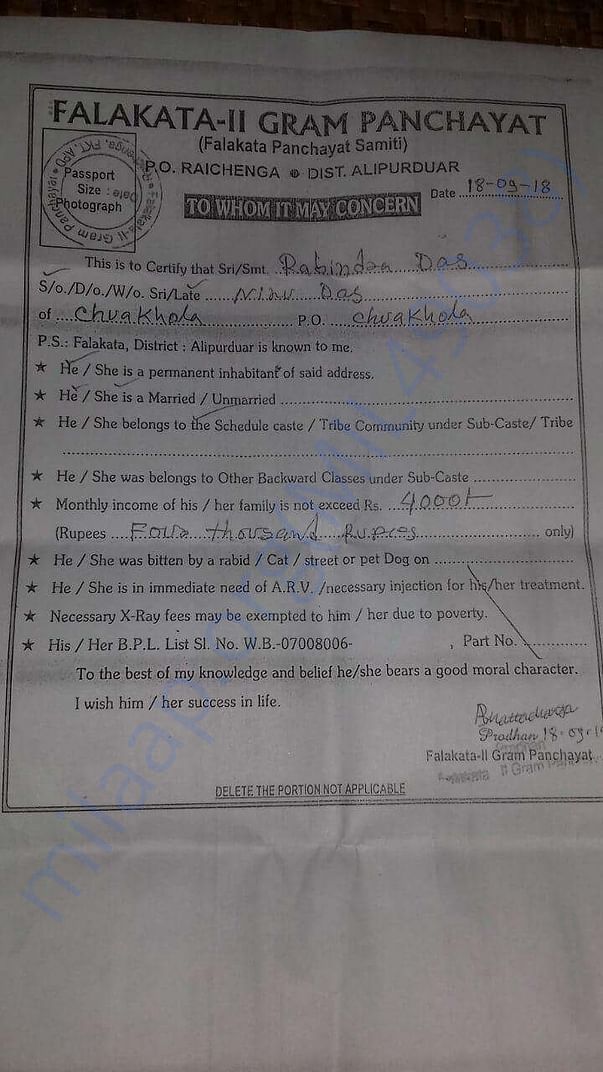 FALAKATA-II GRAM PANCHAYAT
(Falakata Panchayat Samiti)
P.O. RAICHENGA DIST. ALIPURDUAR
Passport
Size
Photograph
Date 18-09-18
TO WHOM IT MAY CONCERN
This is to Certify that Sri/Smt. Rabindra Das
S/o./D/o./W/o. Sri/Late Das
of Chuakhola P.O. Chuakhola
P.S.: Falakata, District : Alipurduar is known to me.
★ He / She is a permanent inhabitant of said address.
★ He / She is a Married / Unmarried
★ He / She belongs to the Schedule caste / Tribe Community under Sub-Caste/ Tribe
★ He / She was belongs to Other Backward Classes under Sub-Caste
★ Monthly income of his / her family is not exceed Rs. 4000/-
(Rupees Four thousand rupees only)
★ He / She was bitten by a rabid / Cat / street or pet Dog on
★ He / She is in immediate need of A.R.V. /necessary injection for his/her treatment.
★ Necessary X-Ray fees may be exempted to him / her due to poverty.
★ His / Her B.P.L. List Sl. No. W.B.-07008006- , Part No.
To the best of my knowledge and belief he/she bears a good moral character.
I wish him / her success in life.
Bhattacharya
Prodhan 18.09.18
Falakata-II Gram Panchayat
II Gram
DELETE THE PORTION NOT APPLICABLE